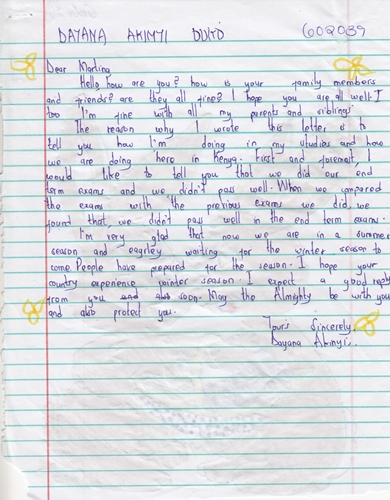 DAYANA AKINYI DULO 602039
Dear Martina
Hello how are you? how is your family members
and friends? are they all fine? I hope you are all well. I
too I'm fine with all my parents and siblings.
The reason why I wrote this letter is to
tell you how I'm doing in my studies and how
we are doing here in Kenya. First and foremost, I
would like to tell you that we did our end
term exams and we didn't pass well. When we compared
the exams with the previous exams we did, we
found that, we didn't pass well in the end term exams.
I'm very glad that now we are in a summer
season and eagrley waiting for the winter season to
come. People have prepared for the season. I hope your
country experience winter season. I expect a good reply
from you and also soon. May the Almighty be with you
and also protect you.
Yours Sincerely,
Dayana Akinyi.